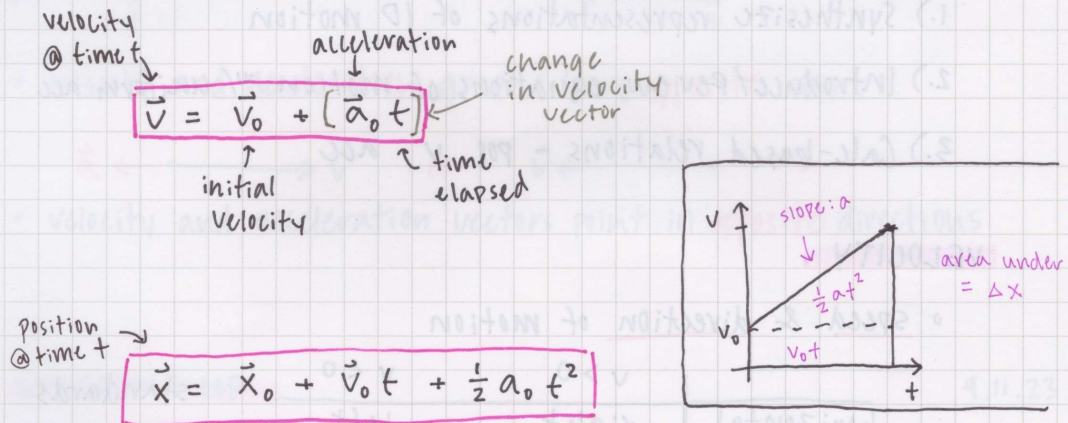 velocity
@ time t
acceleration
change
in velocity
vector
v⃗ = v⃗₀ + [a⃗₀ t]
initial
velocity
time
elapsed
position
@ time t
x⃗ = x⃗₀ + v⃗₀ t + ½ a₀ t²
v
slope: a
½ at²
area under
= Δx
v₀
v₀t
t